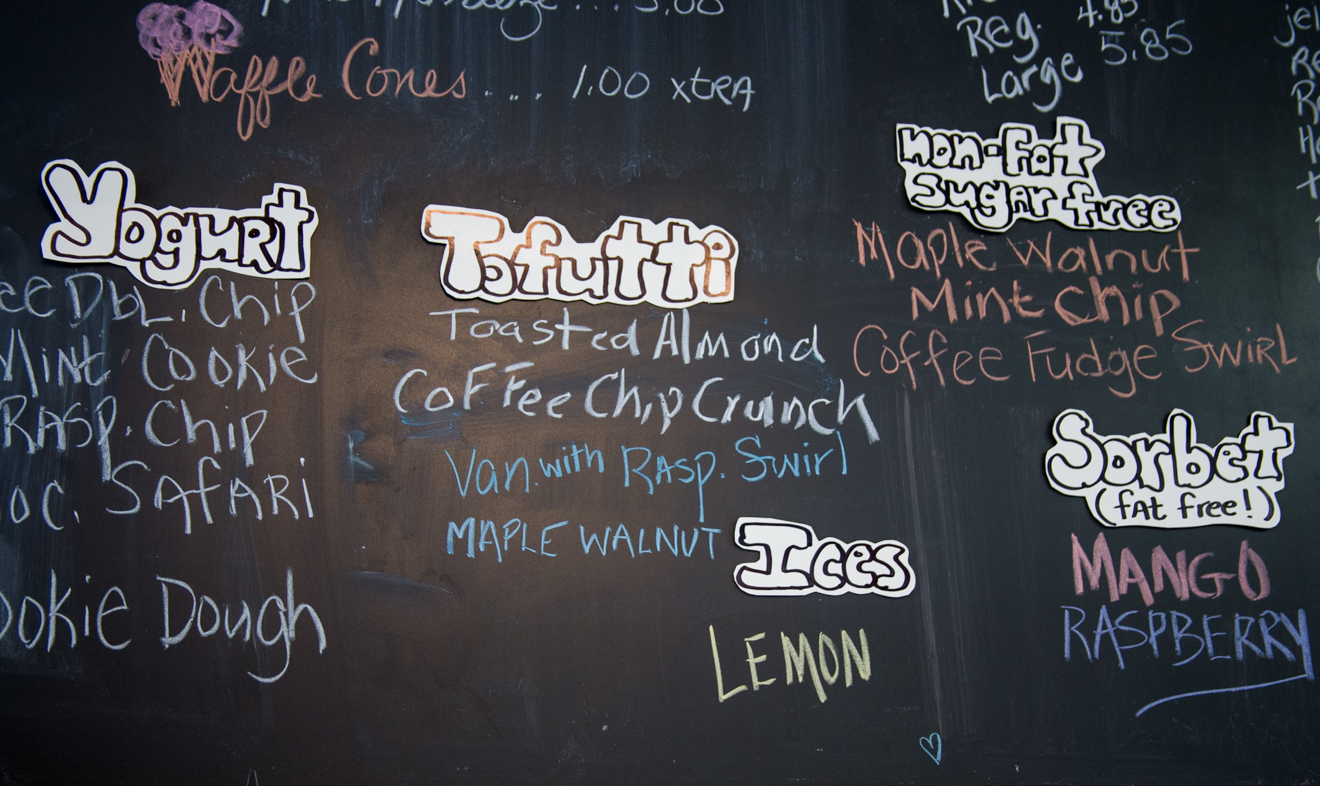 5.00
Waffle Cones ... 1.00 xtRA
Reg. 4.85
Large 5.85
Yogurt
Dbl. Chip
Mint Cookie
RASP. Chip
oc. SAfARi
ookie Dough
Tofutti
Toasted Almond
Coffee Chip Crunch
Van. with RASP. Swirl
MAPLE WALNUT
Ices
LEMON
non-fat
sugar free
Maple Walnut
Mint Chip
Coffee Fudge SwiRL
Sorbet
(fAt free!)
MANGO
RASPBERRY